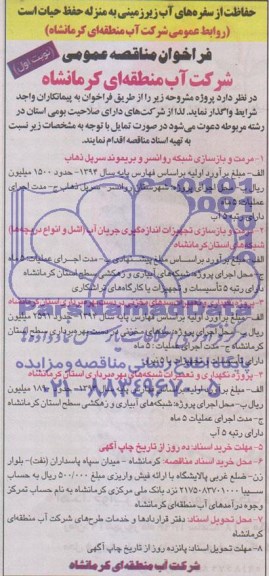 حفاظت از سفره‌های آب زیرزمینی به منزله حفظ حیات است
(روابط عمومی شرکت آب منطقه‌ای کرمانشاه)
فراخوان مناقصه عمومی
نوبت اول
شرکت آب منطقه‌ای کرمانشاه
در نظر دارد پروژه مشروحه زیر را از طریق فراخوان به پیمانکاران واجد
شرایط واگذار نماید. لذا از شرکت‌های دارای صلاحیت بومی استان در
رشته مربوطه دعوت می‌شود در صورت تمایل با توجه به مشخصات زیر نسبت
به تهیه اسناد مناقصه اقدام نمایند.
۱- مرمت و بازسازی شبکه روانسر و بریموند سرپل ذهاب
الف- مبلغ برآورد اولیه براساس فهارس پایه سال ۱۳۹۴- حدود ۱۵۰۰ میلیون
ریال ب- محل اجرای پروژه: شهرستان روانسر - سرپل ذهاب ج- مدت اجرای
عملیات: ۵ ماه
دارای رتبه ۵ آب
۲- مرمت و بازسازی تجهیزات اندازه‌گیری جریان آب (اشل و انواع دریچه‌ها)
شبکه‌های استان کرمانشاه
الف- مبلغ برآورد براساس مبلغ پیشنهادی ب- مدت اجرای عملیات: ۵ ماه
ج- محل اجرای پروژه: شبکه‌های آبیاری و زهکشی سطح استان کرمانشاه
دارای رتبه ۵ تأسیسات و تجهیزات یا کارگاه‌های تراشکاری
الف- مبلغ برآورد اولیه براساس فهارس پایه سال ۱۳۹۴- حدود
کرمانشاه ج- مدت اجرای عملیات: ۵ ماه
۴- پروژه نگهداری و تعمیرات شبکه‌های بهره‌برداری استان کرمانشاه
ریال ب- محل اجرای پروژه: شبکه‌های آبیاری و زهکشی سطح استان کرمانشاه
ج- مدت اجرای عملیات ۵ ماه
دارای رتبه ۵ آب
۵- مهلت خرید اسناد: ده روز از تاریخ چاپ آگهی
۶- محل خرید اسناد مناقصه: کرمانشاه - میدان سپاه پاسداران (نفت)- بلوار
زن- ضلع غربی پالایشگاه با ارائه فیش واریزی مبلغ ۵۰۰/۰۰۰ ریال به حساب
سیبا ۲۱۷۵۰۸۳۷۰۲۱۰۰۰ نزد بانک ملی مرکزی کرمانشاه به نام حساب تمرکز
وجوه درآمدهای آب منطقه‌ای کرمانشاه
۷- محل تحویل اسناد: دفتر قراردادها و خدمات طرح‌های شرکت آب منطقه‌ای
کرمانشاه
۸- مهلت تحویل اسناد: پانزده روز از تاریخ چاپ آگهی
شرکت آب منطقه‌ای کرمانشاه
ParsNamadData
پایگاه اطلاع رسانی مناقصه و مزایده
۰۲۱-۸۸۳۴۹۶۷۰-۵